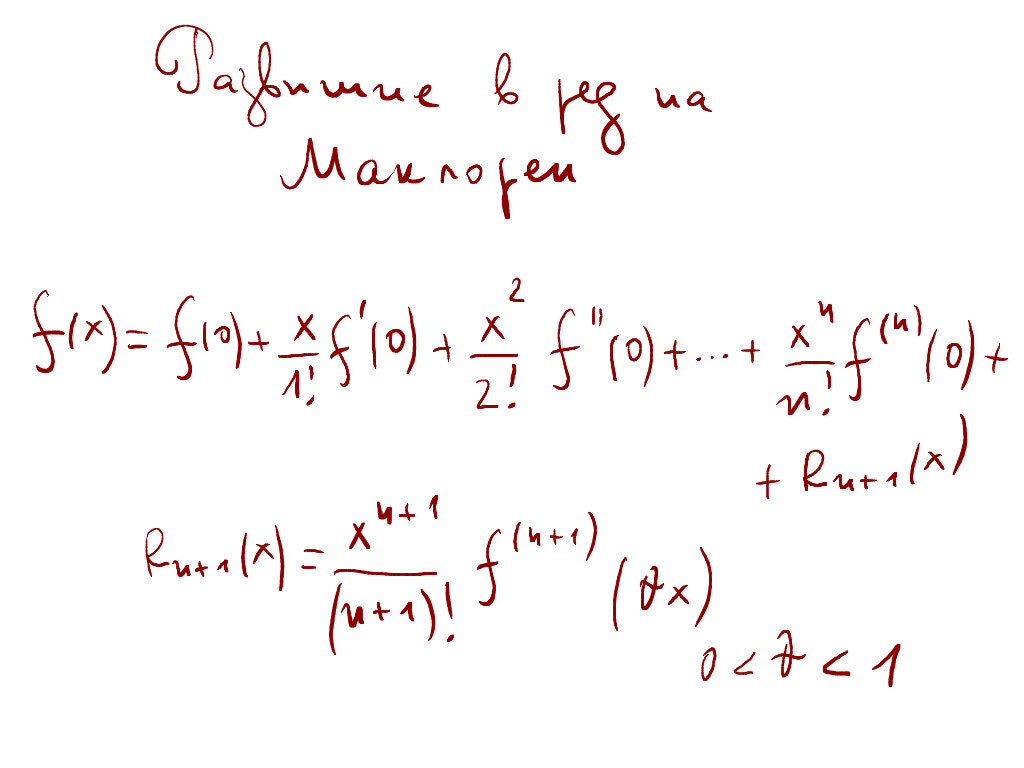 Развитие в ред на
Маклорен
f(x) = f(0) + x/1! f'(0) + x²/2! f''(0) + ... + xⁿ/n! f⁽ⁿ⁾(0) +
+ Rₙ₊₁(x)
Rₙ₊₁(x) = xⁿ⁺¹/(n+1)! f⁽ⁿ⁺¹⁾(ϑx)
0 < ϑ < 1